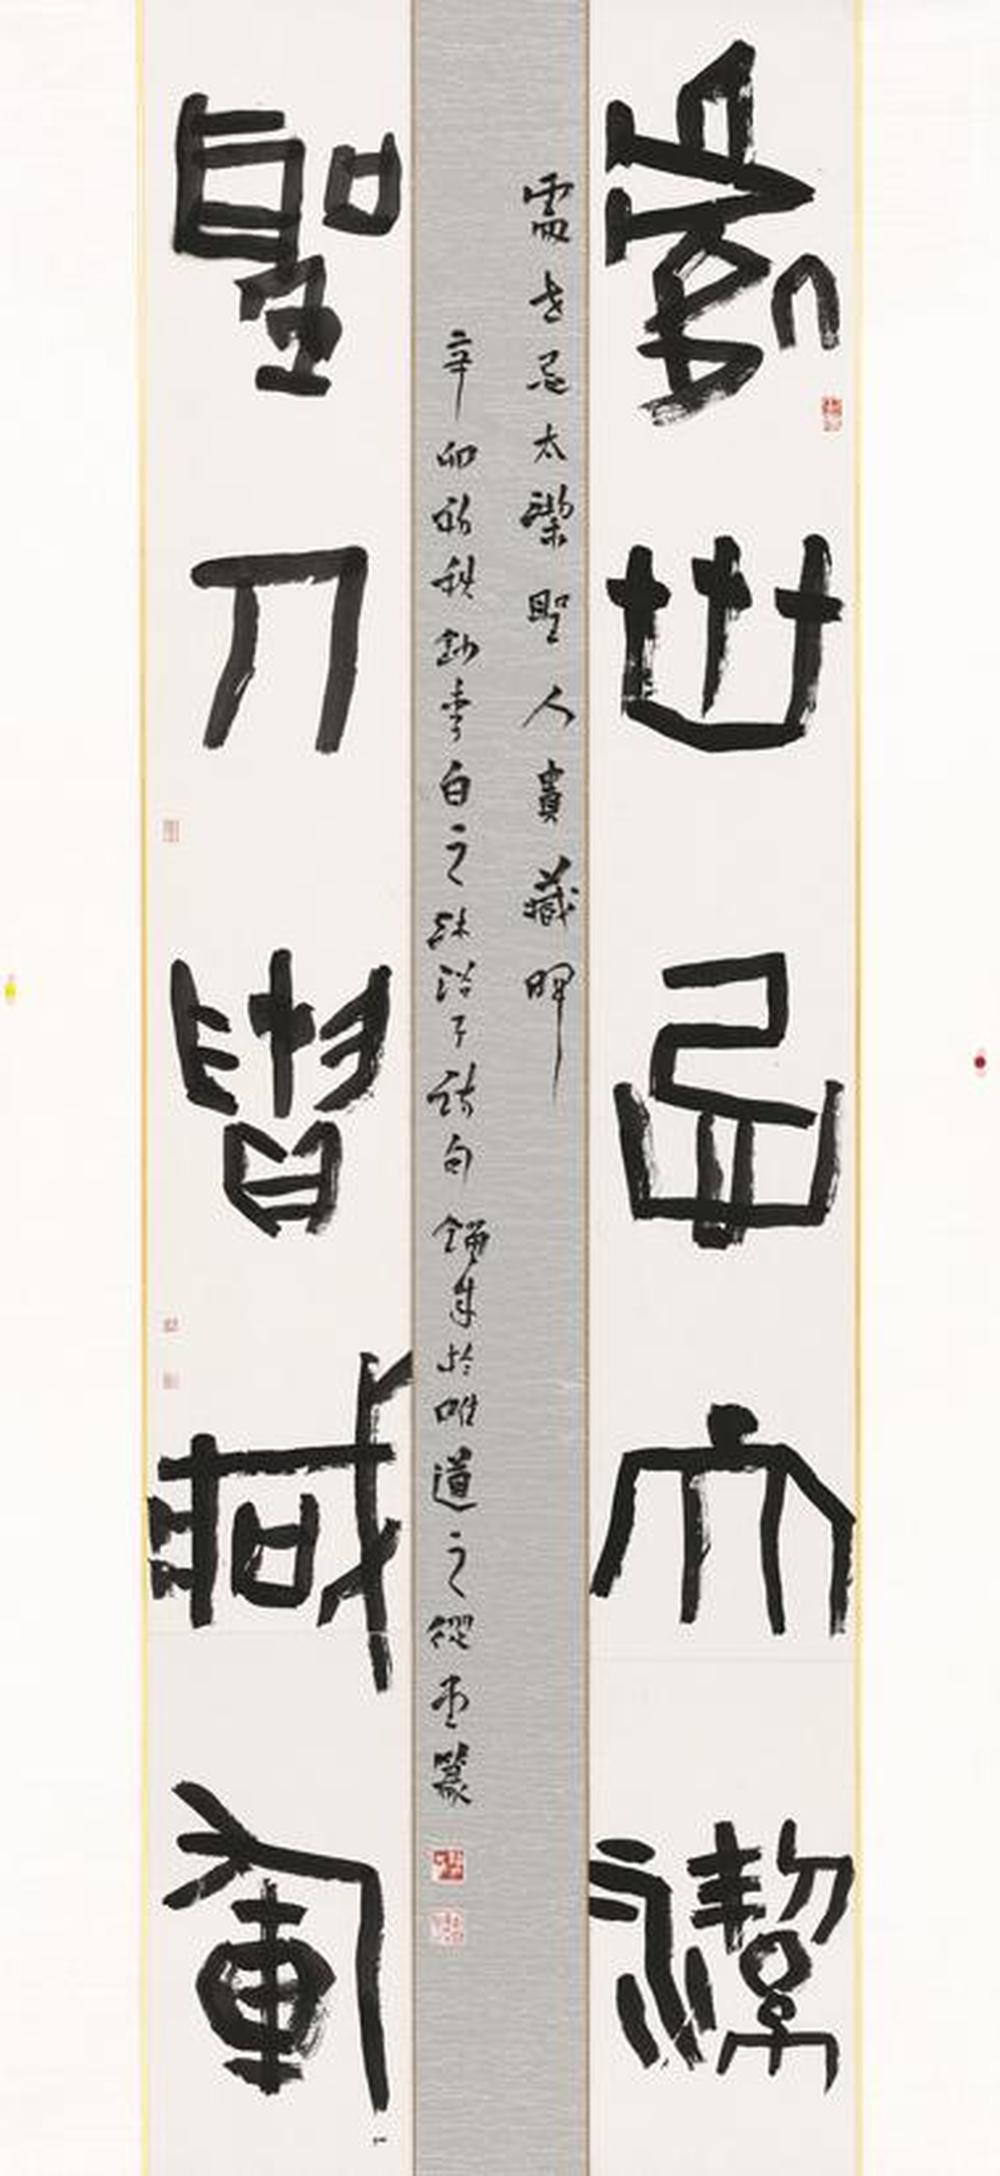 處世忌太潔
處世忌太潔聖人貴藏暉
辛卯初秋鈔李白之沐浴子詩句於唯道之從堂篆
聖人貴藏暉